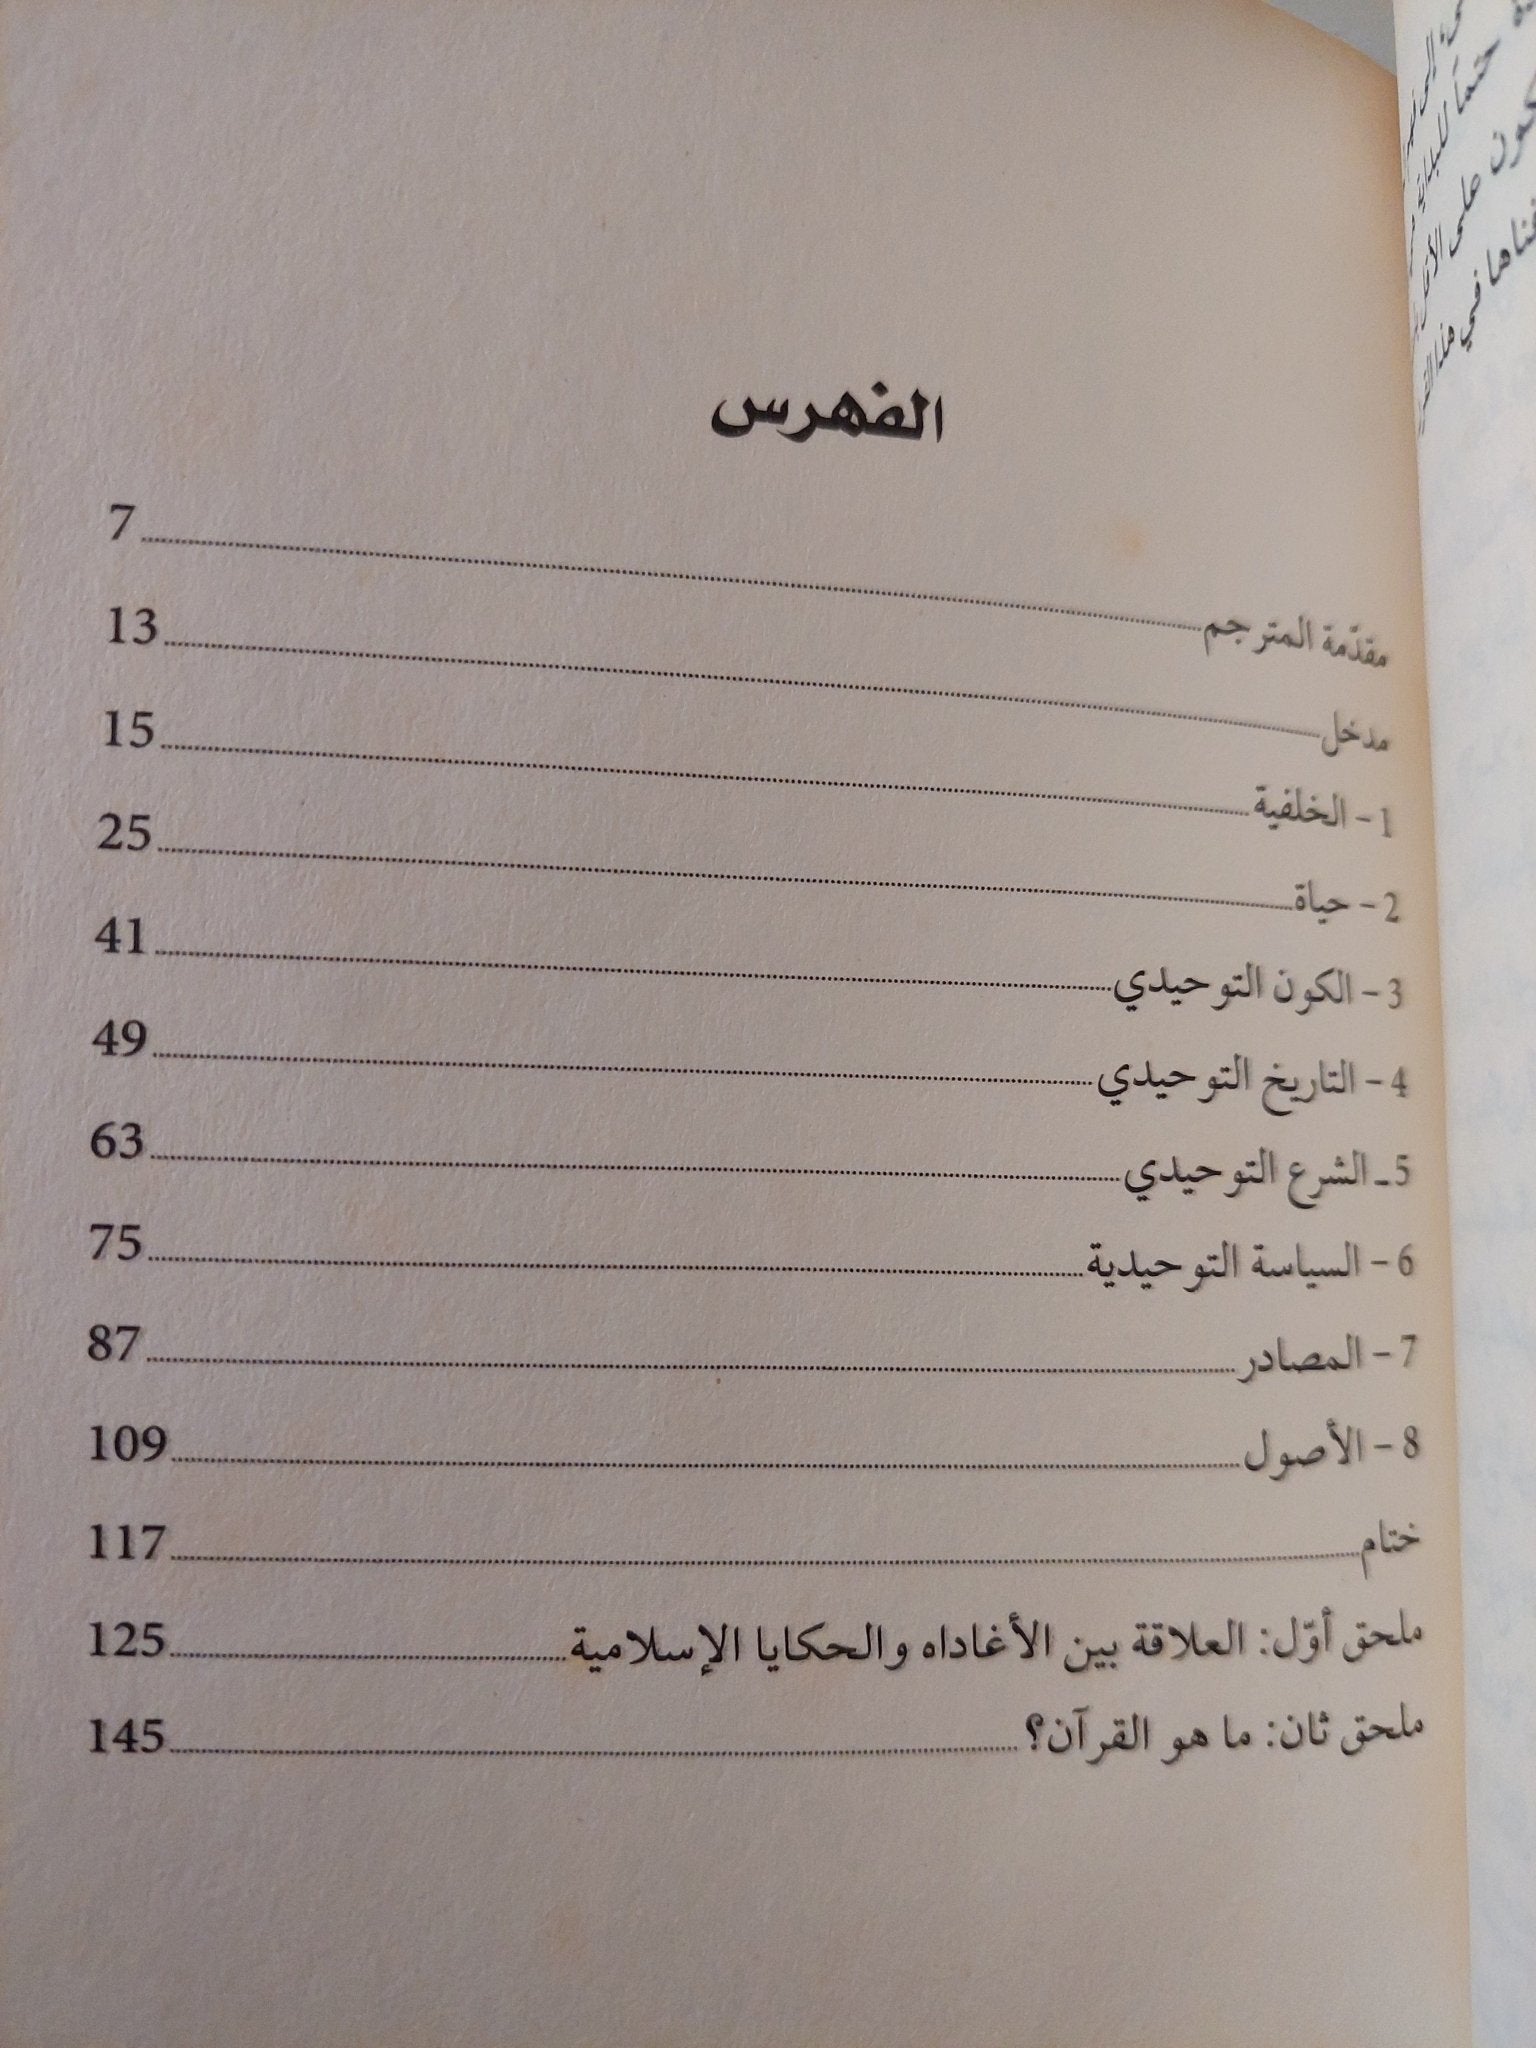 الفهرس
مقدّمة المترجم 7
مدخل 13
1 - الخلفية 15
2 - حياة 25
3 - الكون التوحيدي 41
4 - التاريخ التوحيدي 49
5 ـ الشرع التوحيدي 63
6 - السياسة التوحيدية 75
7 - المصادر 87
8 - الأصول 109
ختام 117
ملحق أوّل: العلاقة بين الأغاداه والحكايا الإسلامية 125
ملحق ثان: ما هو القرآن؟ 145
حتماً للبداية
كون على الأقل
في هذا